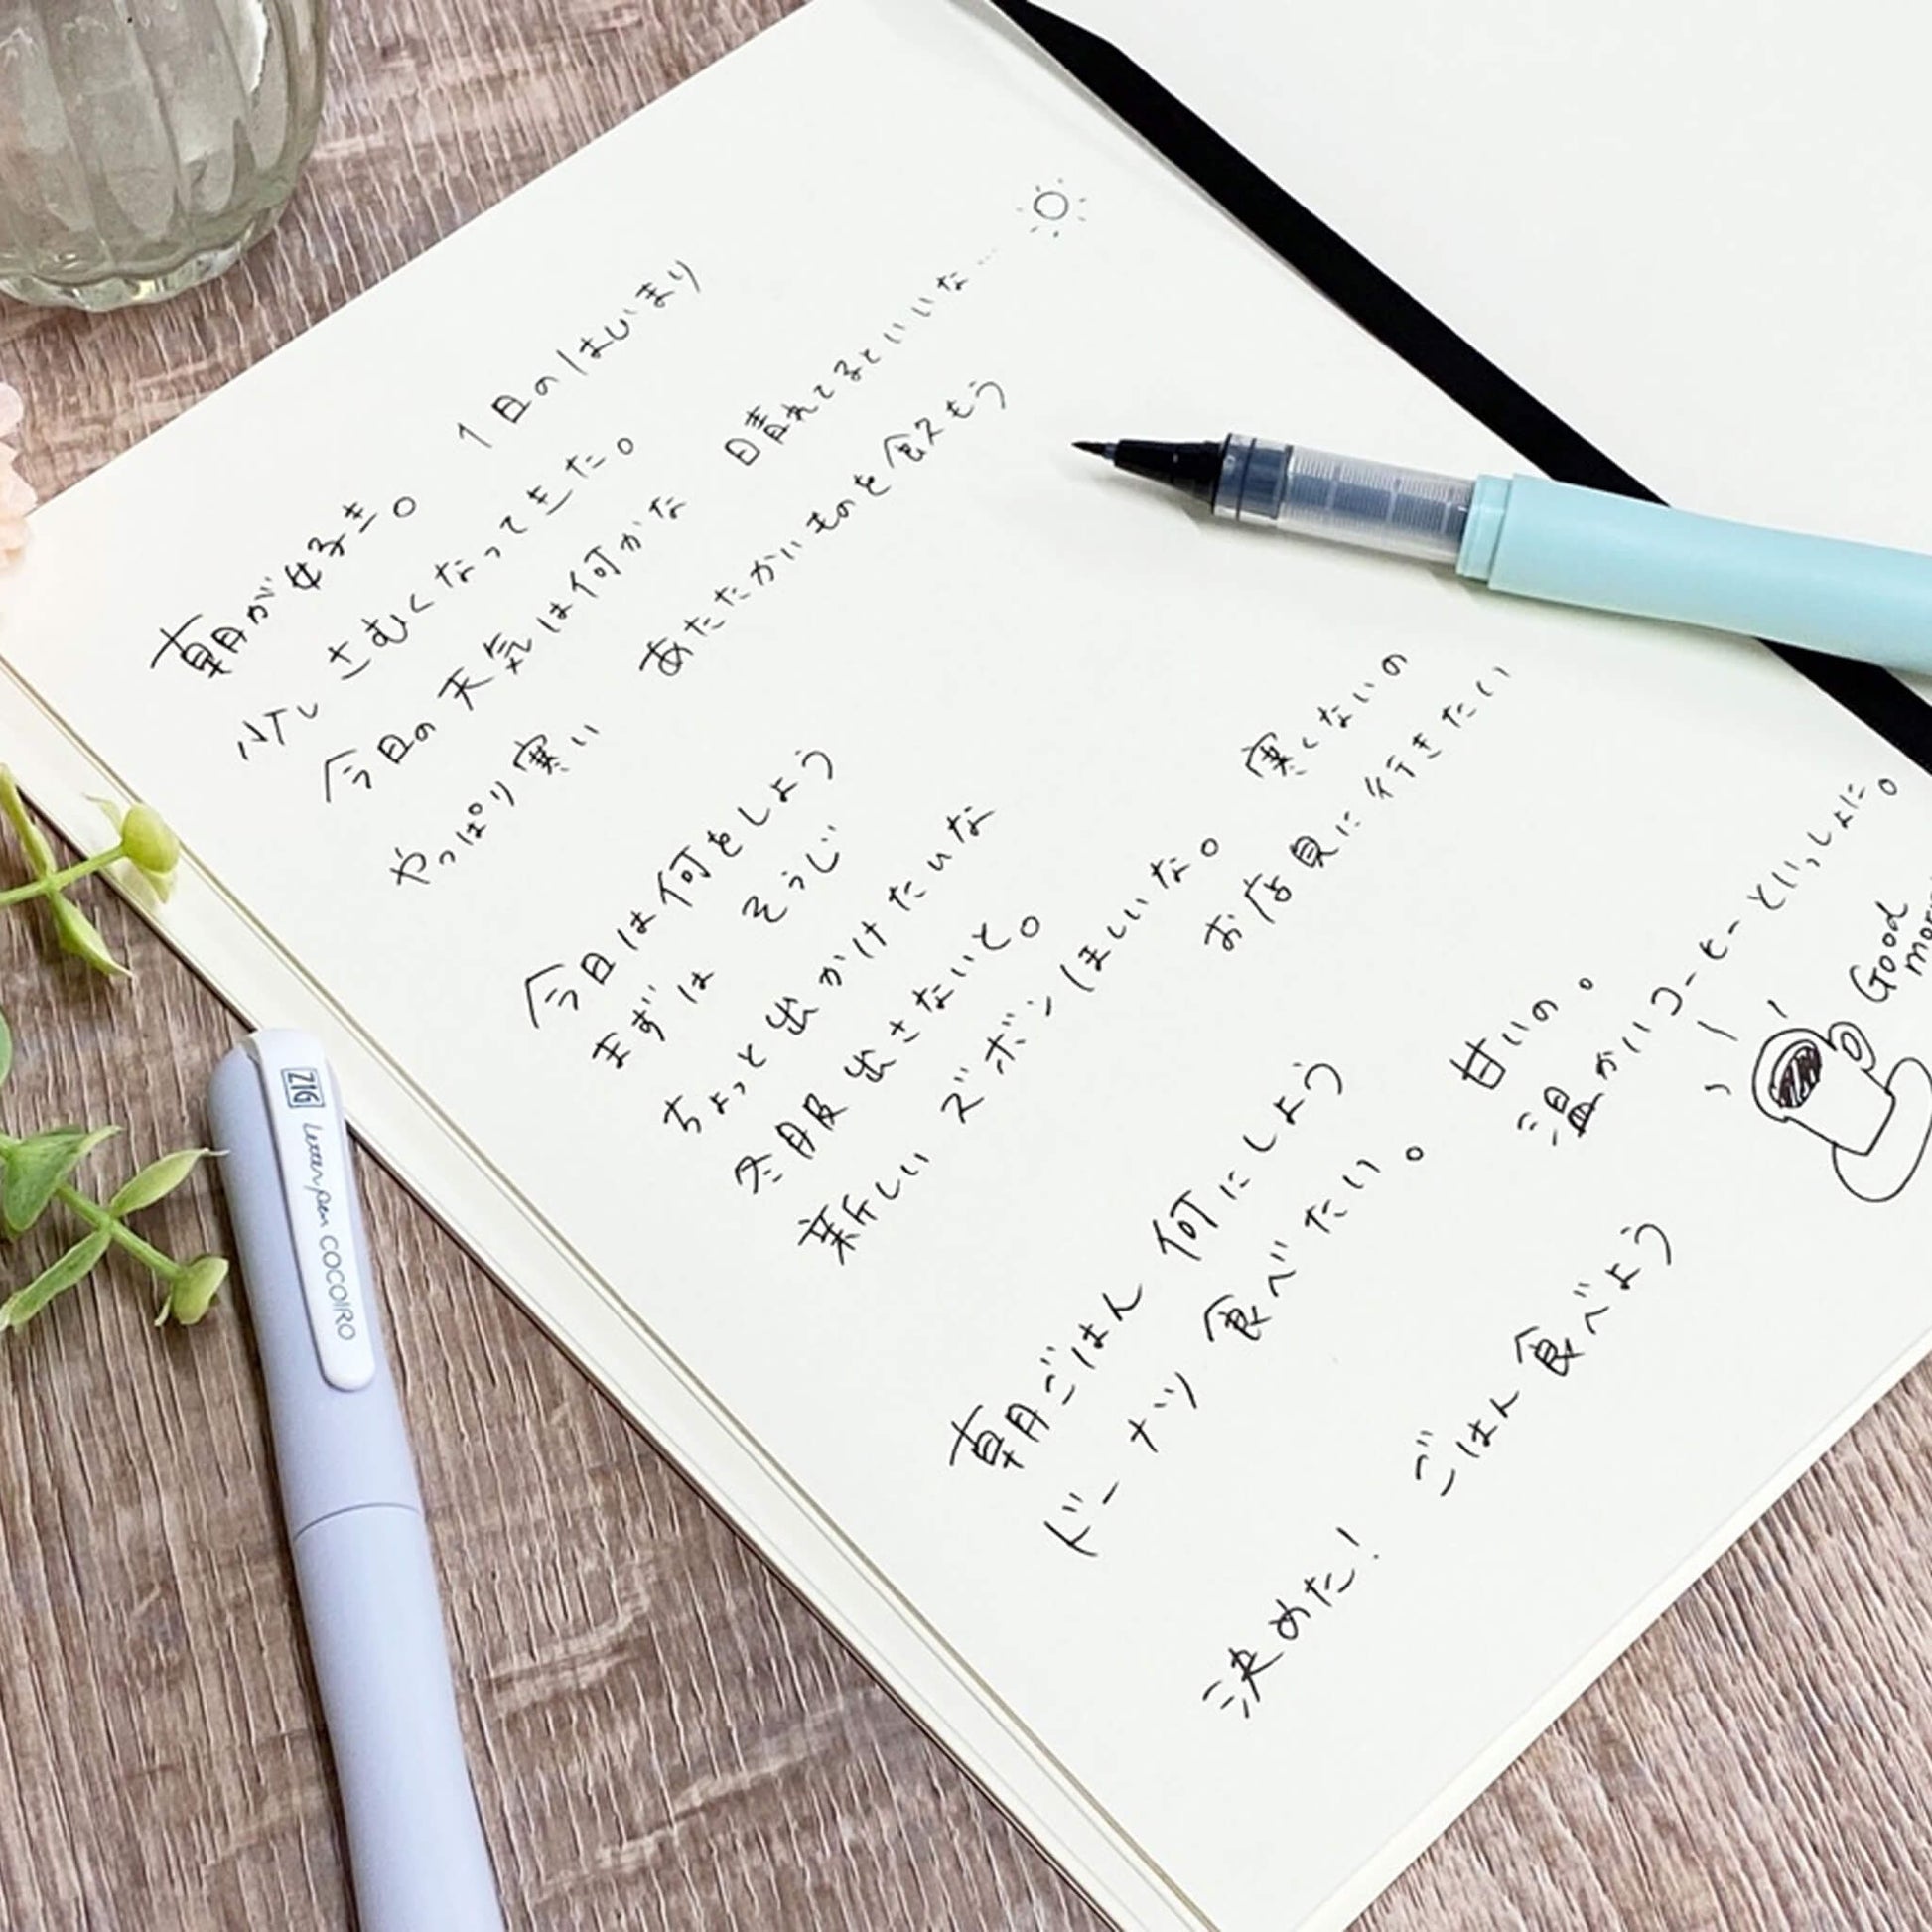 朝が好き。 1日のはじまり
少し さむくなってきた。
今日の天気は何かな 晴れてるといいな…
やっぱり寒い あたたかいものを食べよう
今日は何をしよう
まずは そうじ
ちょっと出かけたいな
冬服出さないと。
新しい ズボンほしいな。 寒くないの
お店見に行きたい
朝ごはん 何にしよう
ドーナツ 食べたい。 甘いの。
温かいコーヒーといっしょに。
Good
決めた! ごはん食べよう
ZIG Letter pen COCOIRO